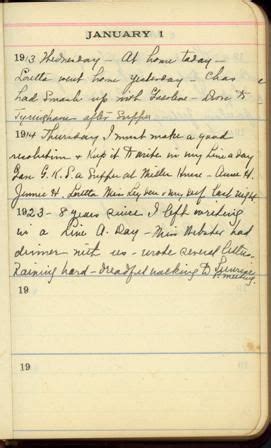 JANUARY 1
1913 Wednesday - At home today -
Loretta went home yesterday - Chas
had Smash up with Gasoline - Drove to
after Supper
1914 Thursday I must make a good
resolution & Keep it to write in my Line a day
Jan G. K. S. a Supper at Miller House - Anne H.
Jennie H. Loretta Miss & myself last night
1923 - 8 years since I left writing
in a Line A. Day - Miss Webster had
dinner with us - wrote several letters
Raining hard - dreadful walking to
meeting.
19
19